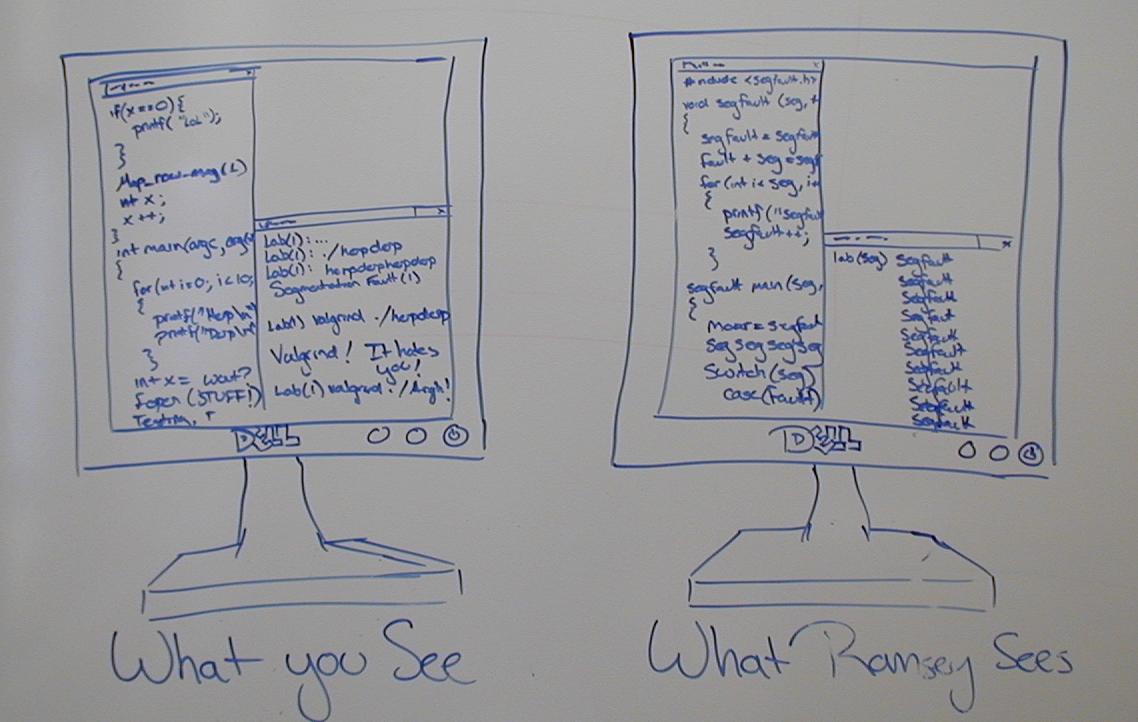 if(x==0){
printf("LoL");
}
}
int x;
x++;
}
int main(argc, arg
{
for(int i=0; i<10;
{
printf("Herp\n"
printf("Derp\n"
}
int x = wat?
fopen(STUFF!)
Lab(1): ...
Lab(1): ./herpderp
Lab(1): herpderpherpderp
Segmentation Fault(1)
Lab(1) valgrind ./herpderp
Valgrind! It hates
you!
Lab(1) valgrind ./Argh!
DELL
What you See
#include <segfault.h>
void segfault (seg,
{
segfault = segfault
fault + seg = seg
for(int i< seg, i+
{
printf("segfau
segfault++;
}
segfault main(seg,
{
moar = segfault
seg seg seg seg
switch(seg)
case(fault)
lab(seg) Segfault
Segfault
Segfault
Segfault
Segfault
Segfault
Segfault
Segfault
Segfault
Segfault
DELL
What Ramsey Sees